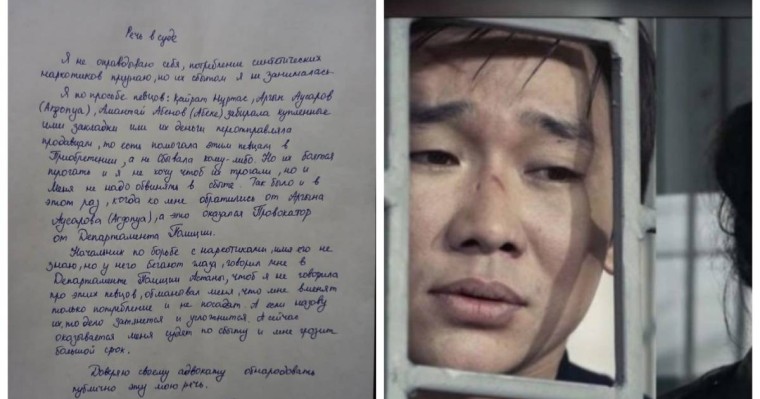 Речь в суде
Я не оправдываю себя, потребление синтетических
наркотиков признаю, но их сбытом я не занималась.
Я по просьбе певцов: Кайрат Нуртас, Аргын Аусаров
(Агдопуа), Амантай Абенов (Абеке) забирала купленные
ими закладки или их деньги переотправляла
продавцам, то есть помогала этим певцам в
Приобретении, а не сбывала кому-либо. Но их боятся
трогать и я не хочу чтоб их трогали, но и
меня не надо обвинять в сбыте. Так было и в
этот раз, когда ко мне обратились от Аргына
Аусарова (Агдопуа), а это оказался Провокатор
от Департамента Полиции.
Начальник по борьбе с наркотиками, имя его не
знаю, но у него бегают глаза, говорил мне в
Департаменте Полиции Астаны, чтоб я не говорила
про этих певцов, обманывал меня, что мне вменят
только потребление и не посадят. А если назову
их, то дело затянется и усложнится. А сейчас
оказывается меня судят по сбыту и мне грозит
большой срок.
Доверяю своему адвокату обнародовать
публично эту мою речь.